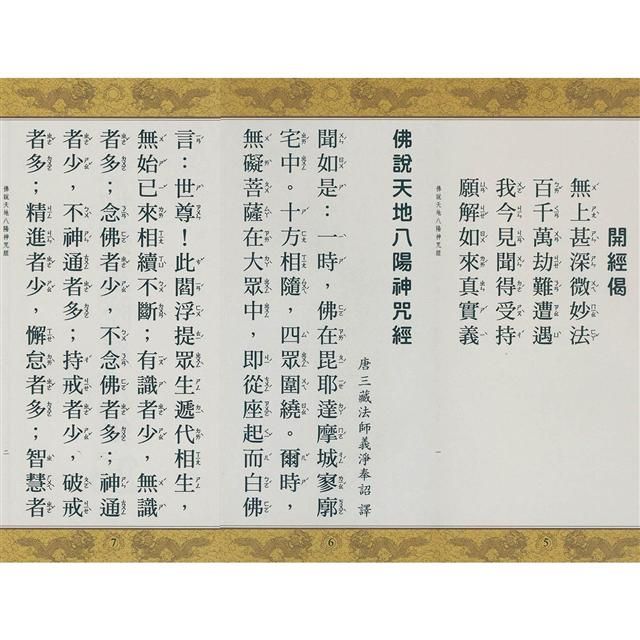 開經偈
無上甚深微妙法
百千萬劫難遭遇
我今見聞得受持
願解如來真實義
佛說天地八陽神咒經
一
5
佛說天地八陽神咒經
唐三藏法師義淨奉詔 譯
聞如是：一時，佛在毘耶達摩城寥廓
宅中。十方相隨，四眾圍繞。爾時，
無礙菩薩在大眾中，即從座起而白佛
6
言：世尊！此閻浮提眾生遞代相生，
無始已來相續不斷；有識者少，無識
者多；念佛者少，不念佛者多；神通
者少，不神通者多；持戒者少，破戒
者多；精進者少，懈怠者多；智慧者
佛說天地八陽神咒經
二
7